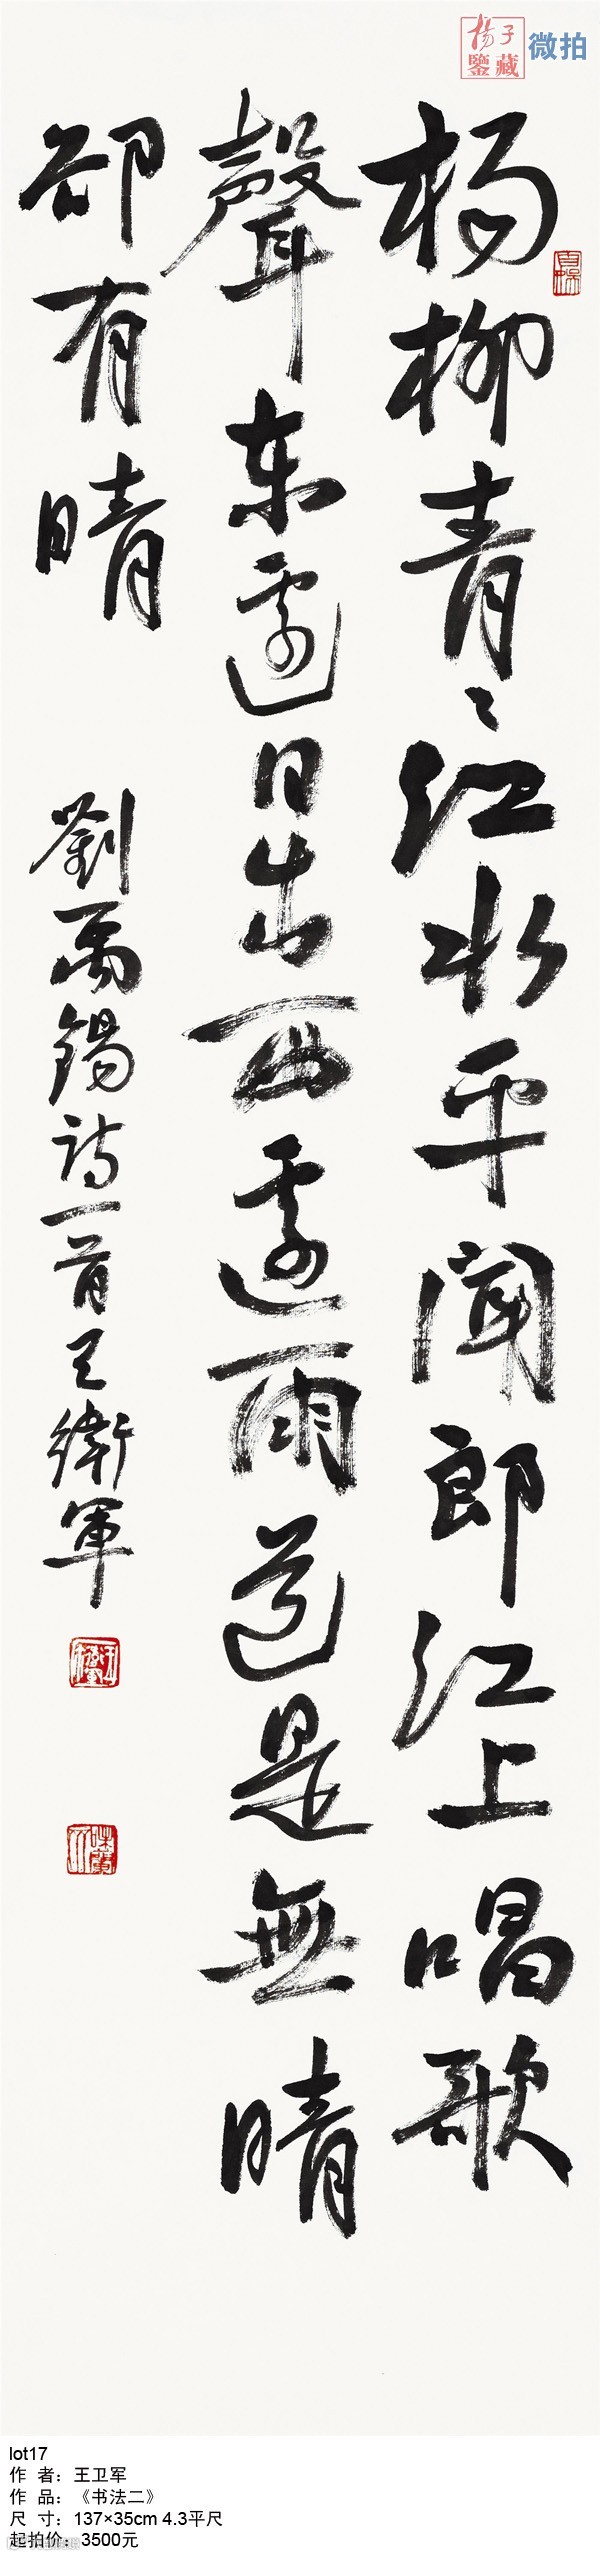 杨子
鑒藏
微拍
楊柳青〻江水平聞郎江上唱歌
聲东邊日出西邊雨道是無晴
卻有晴
劉禹錫詩一首王衛軍
lot17
作 者：王卫军
作 品：《书法二》
尺 寸：137×35cm 4.3平尺
起拍价：3500元